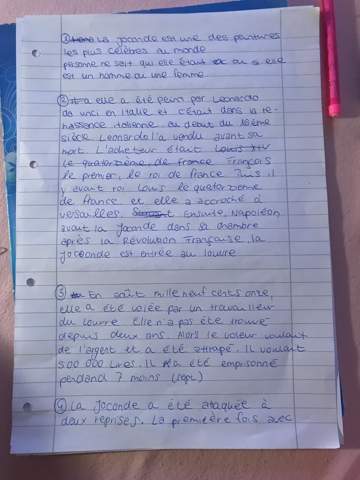 ① La Joconde est une des peintures
les plus célèbres au monde
personne ne sait qui elle était ou si elle
est un homme ou une femme.
② elle a été peint par Leonardo
da vinci en Italie et c'était dans la re-
naissence italienne au début du 16ème
siècle Leonardo l'a vendu avant sa
mort L'acheteur était Louis XIV
Le quatorzième, de France Français
le premier, le roi de France Puis il
y avait roi Louis le quatorzieme
de France et elle a accroché à
versailles. Ensuite, Napoléon
avait la Joconde dans sa chambre
après la Révolution Française, la
Joceonde est entrée au louvre
③ En août mille neuf cents onze,
elle a été volée par un travailleur
du Louvre Elle n'a pas été trouvé
depuis deux ans. Alors le voleur voulait
de l'argent et a été attrapé. Il voulait
500 000 Lires. Il a été emprisonné
pendand 7 moins (sept)
④ La Joconde a été attaquée à
deux reprises. La premiere fois avec